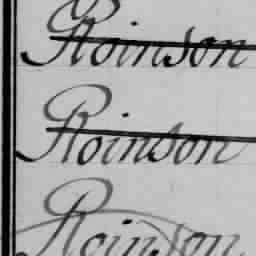 Roinson
Roinson
Roinson